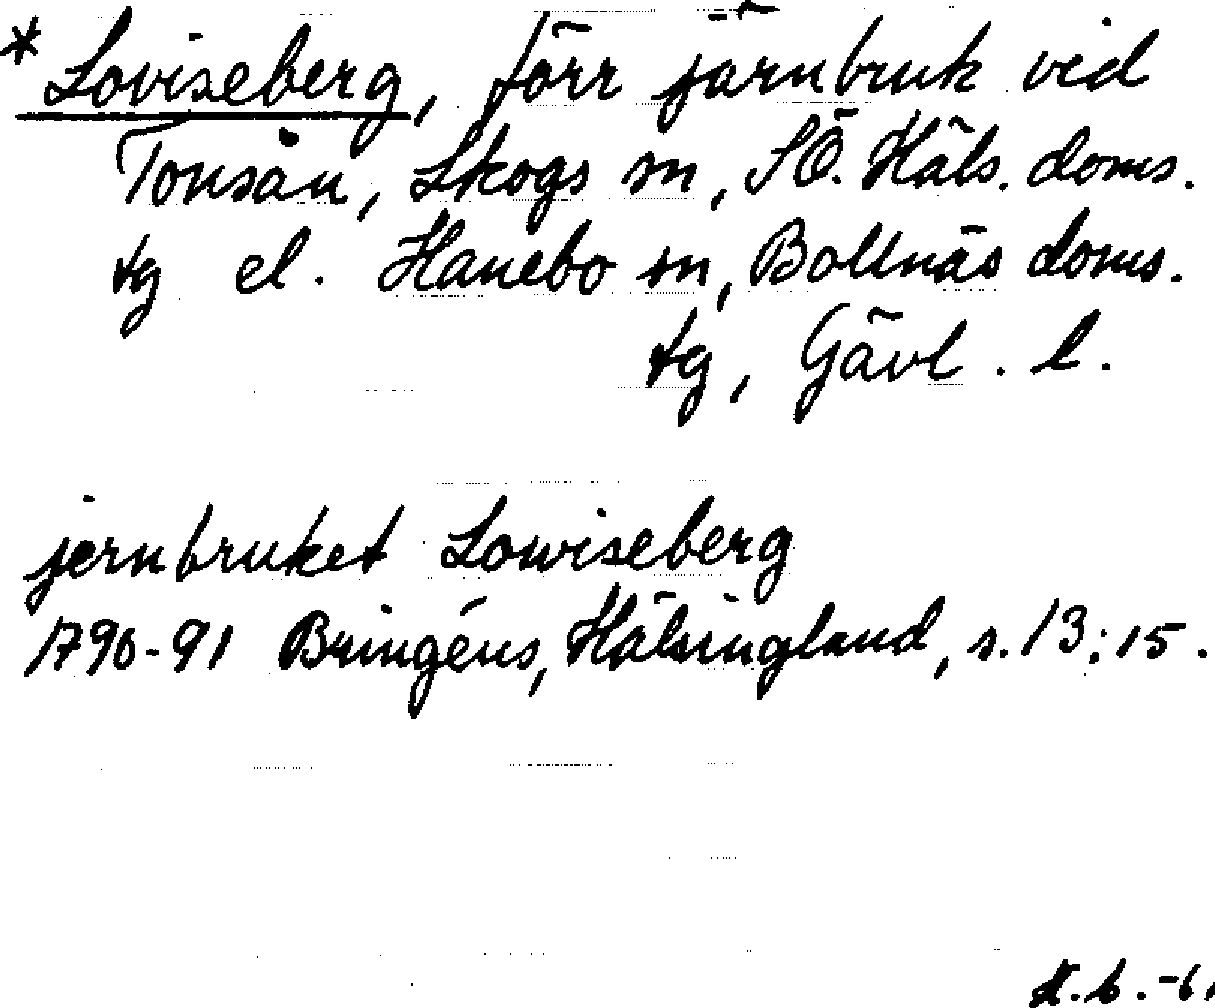 * Loviseberg, förr järnbruk vid
Tonsån, Skogs sn, SÖ. Häls. doms.
tg el. Hanebo sn, Bollnäs doms.
tg, Gävl. l.
jernbruket Lowiseberg
1790-91 Bringéus, Hälsingland, s. 13; 15.